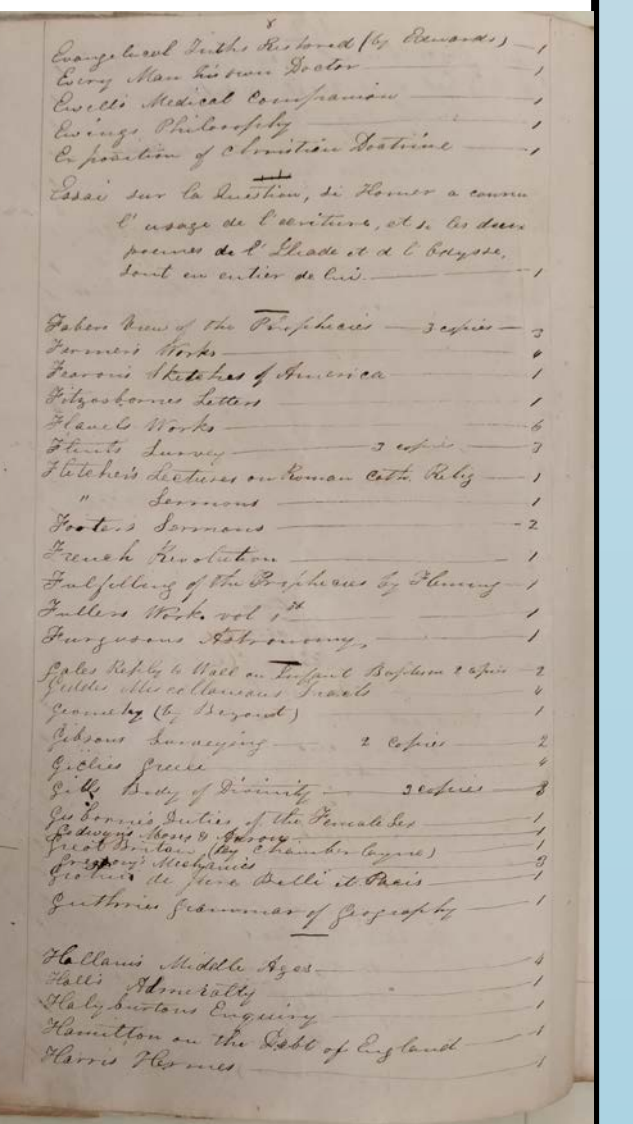 8
Evangelical Truths Restored (by Edwards) — 1
Every Man his own Doctor — 1
Ewells Medical Companion — 1
Ewings Philosophy — 1
Exposition of Christian Doctrine — 1
Essai sur la Question, si Homer a connu
l'usage de l'ecriture, et si les deux
poemes de l'Iliade et d l'Odysse,
sont en entier de lui. — 1
Fabers View of the Prophecies — 3 copies — 3
Farmer's Works — 4
Fearon's Sketches of America — 1
Fitzosbornes Letters — 1
Flavels Works — 6
Flints Survey — 3 copies — 3
Fletcher's Lectures on Roman Cath. Relig — 1
" Sermons — 1
Foster's Sermons — 2
French Revolution — 1
Fulfilling of the Prophecies by Fleming — 1
Fullers Works vol 1st — 1
Furgusons Astronomy, — 1
Gales Reply to Wall on Infant Baptism 2 copies — 2
Geddis Miscellaneous Tracts — 4
Geometry (by Bezout) — 1
Gibsons Surveying — 2 Copies — 2
Gillies Greece — 4
Gills Body of Divinity — 3 copies — 3
Gisborne's Duties of the Female Sex — 1
Godwyn's Moses & Aaron — 1
Great Britain (by Chamberlayne) — 1
Gregory's Mechanics — 3
Grotius de Jure Belli et Pacis — 1
Guthries Grammar of Geography — 1
Hallam's Middle Ages — 4
Hall's Admiralty — 1
Halyburtons Enquiry — 1
Hamilton on the Debt of England — 1
Harris Hermes — 1